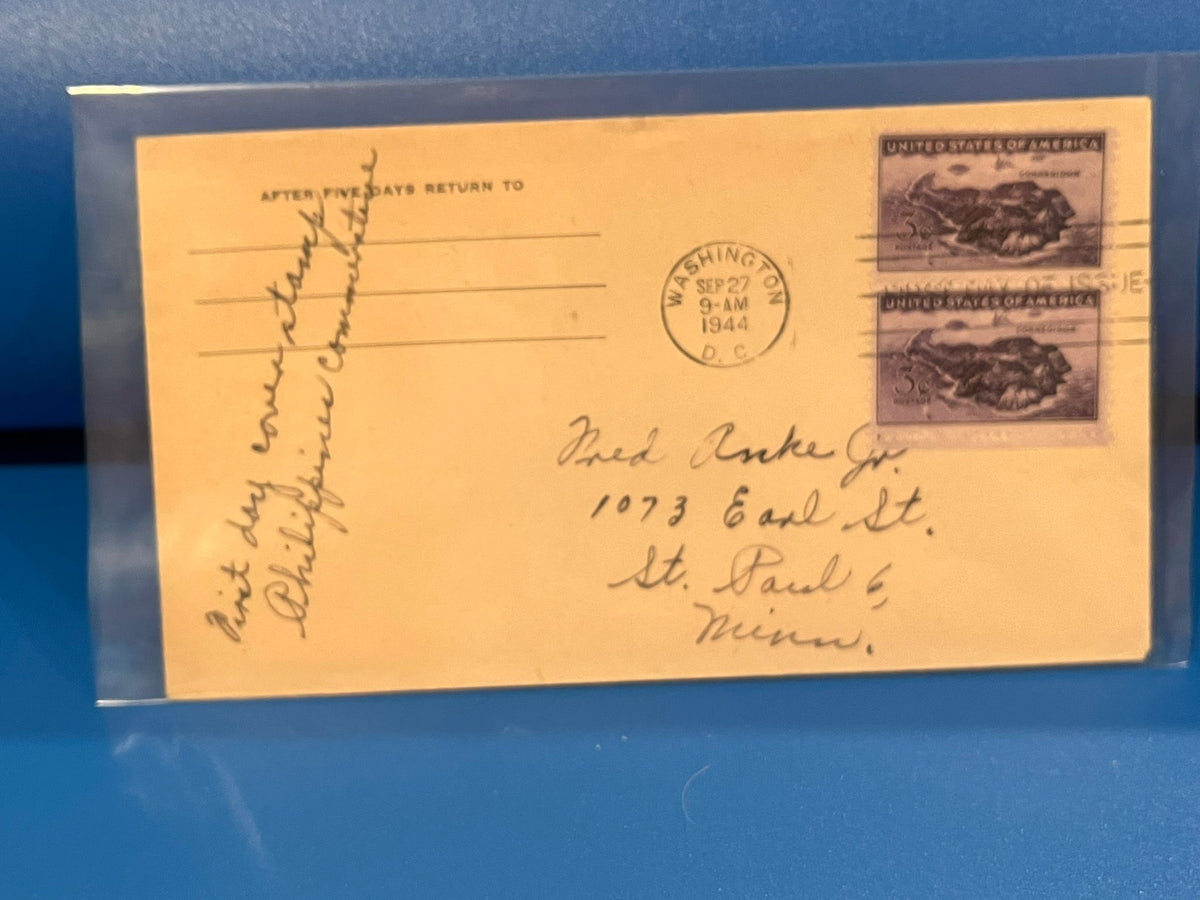 AFTER FIVE DAYS RETURN TO
First day cover stamp
Philippines commemorative
WASHINGTON
SEP 27
9-AM
1944
D. C.
UNITED STATES OF AMERICA
CORREGIDOR
3¢
POSTAGE
DAY OF ISSUE
UNITED STATES OF AMERICA
CORREGIDOR
3¢
POSTAGE
Fred Anke Jr.
1073 Earl St.
St. Paul 6,
Minn.